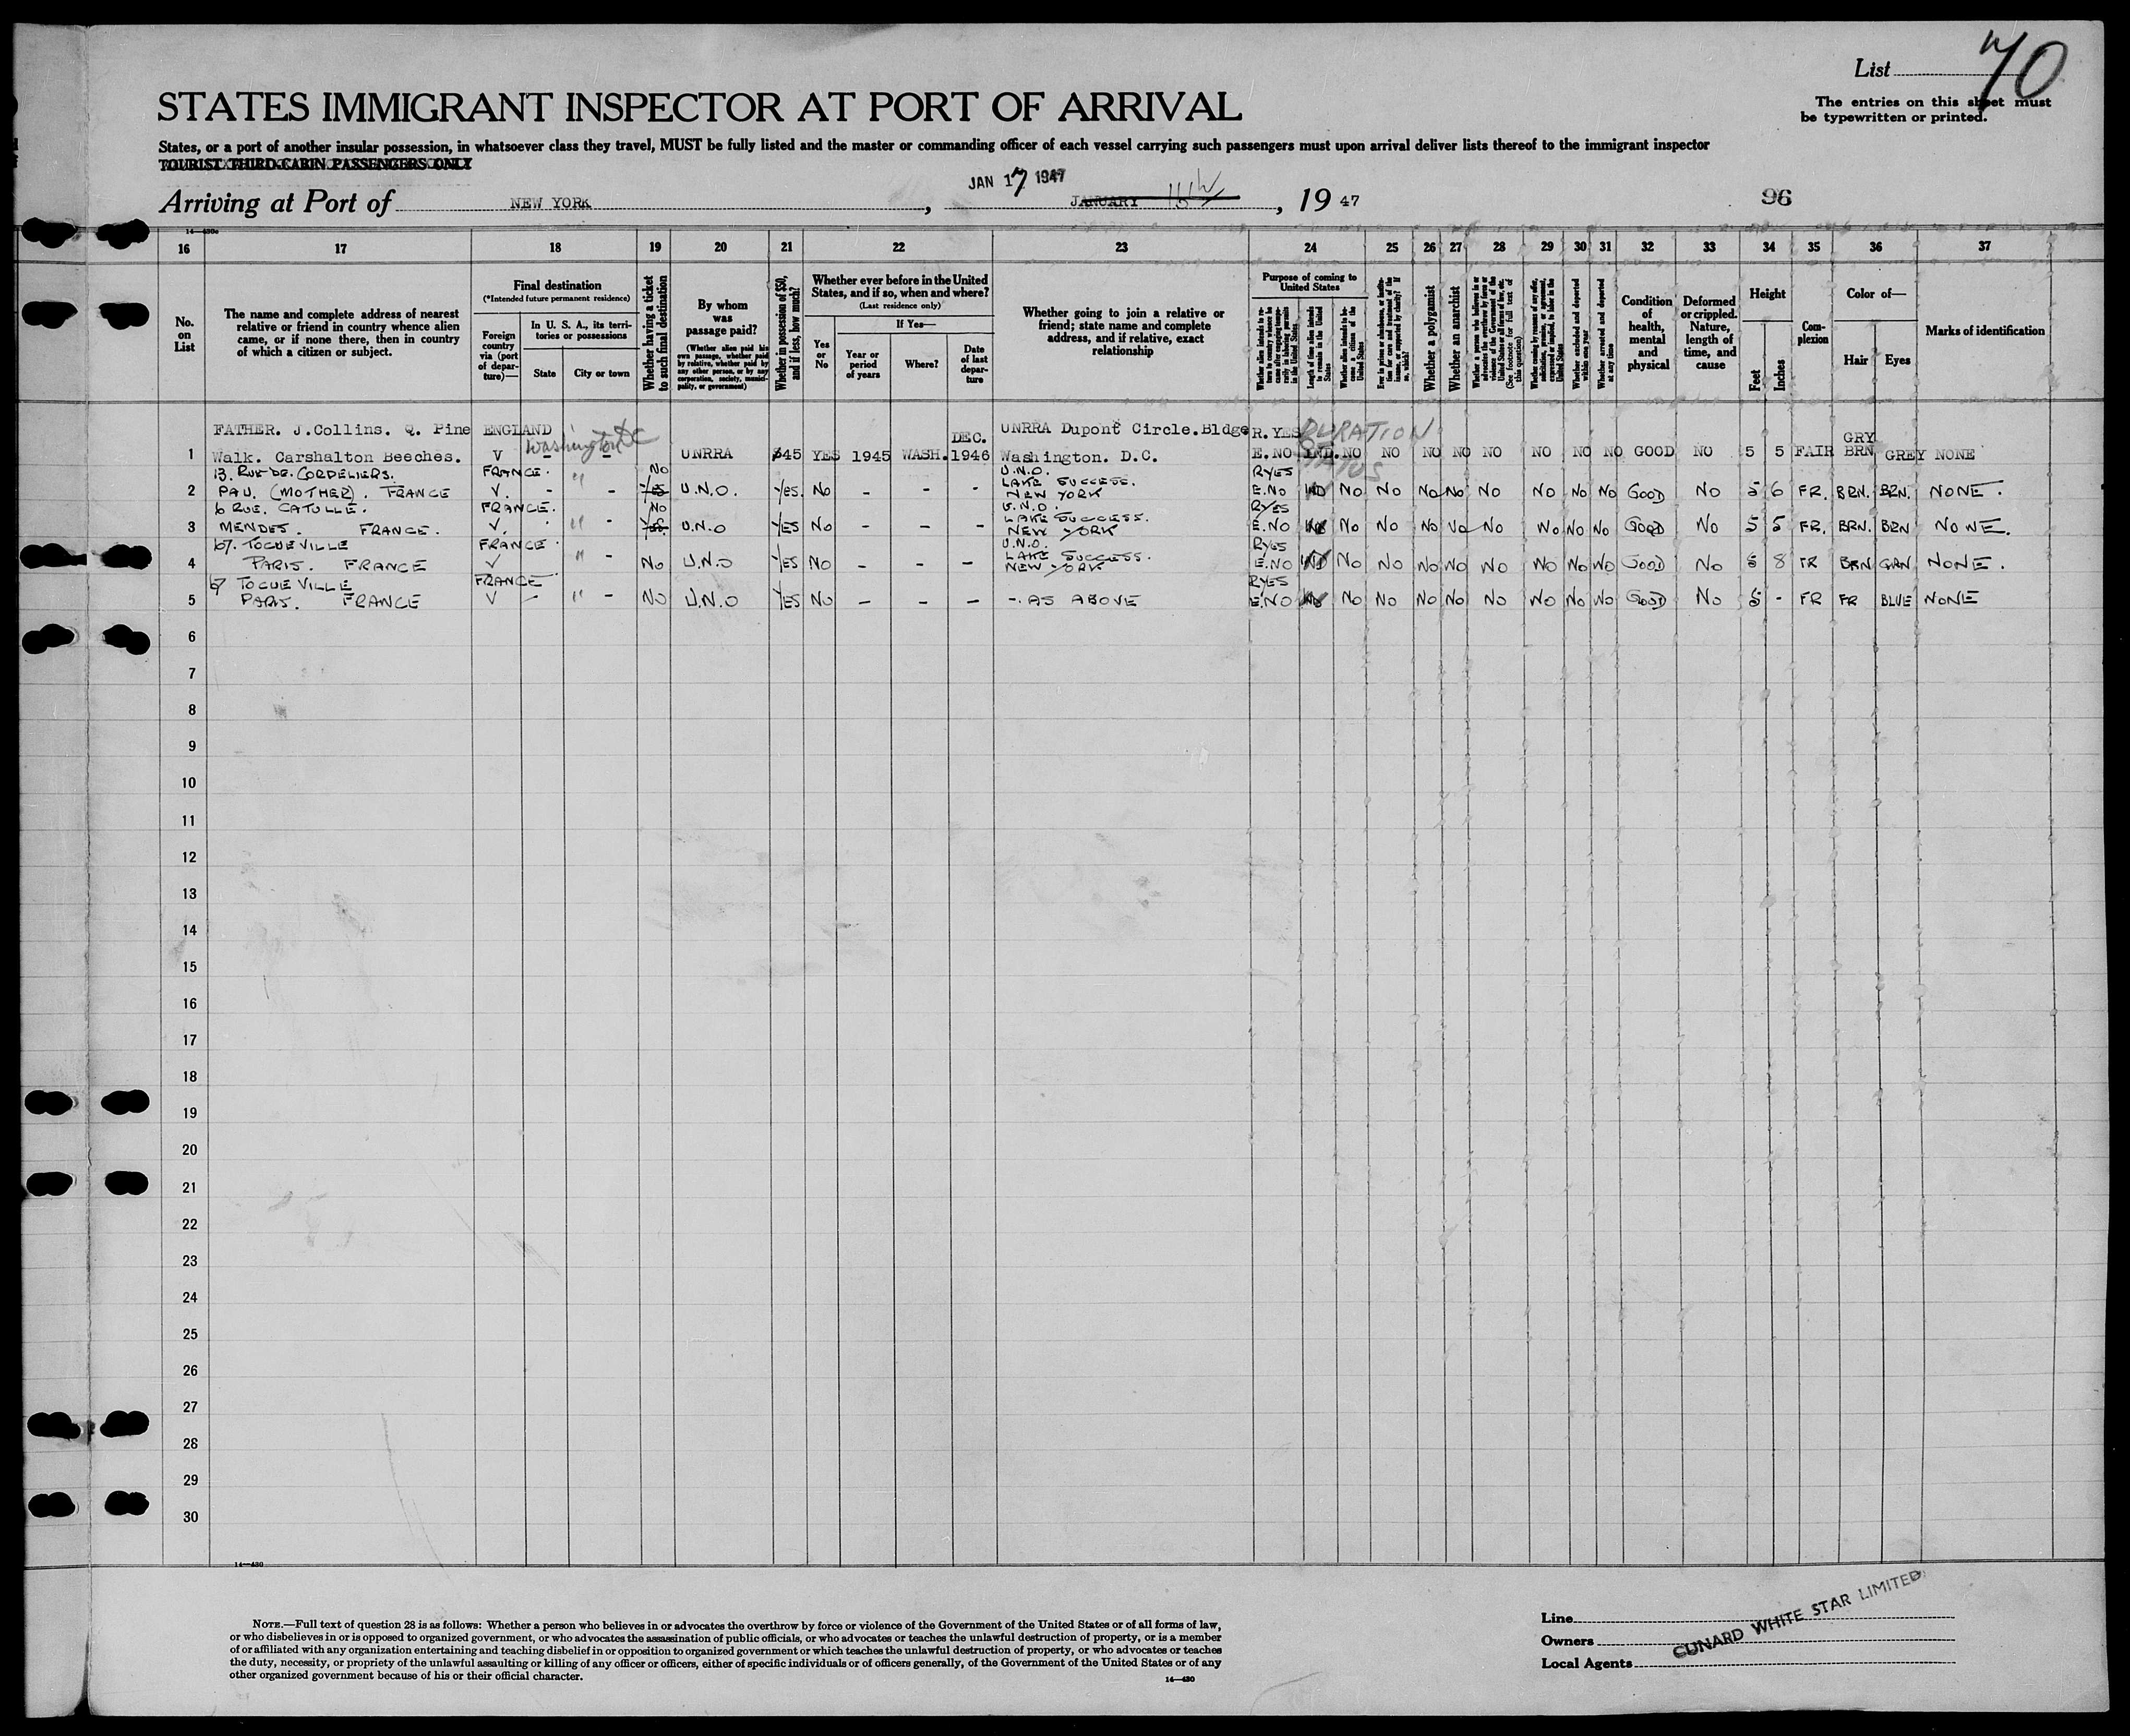 List 70
The entries on this sheet must
be typewritten or printed.
STATES IMMIGRANT INSPECTOR AT PORT OF ARRIVAL
States, or a port of another insular possession, in whatsoever class they travel, MUST be fully listed and the master or commanding officer of each vessel carrying such passengers must upon arrival deliver lists thereof to the immigrant inspector
TOURIST THIRD-CABIN PASSENGERS ONLY
JAN 17 1947
Arriving at Port of NEW YORK, JANUARY, 19 47
96
14—430c
16 17 18 19 20 21 22 23 24 25 26 27 28 29 30 31 32 33 34 35 36 37
No. on List
The name and complete address of nearest
relative or friend in country whence alien
came, or if none there, then in country
of which a citizen or subject.
Final destination
(*Intended future permanent residence)
Foreign country via (port of departure)—
In U. S. A., its territories or possessions
State
City or town
Whether having a ticket to such final destination
By whom was passage paid?
(Whether alien paid his own passage, whether paid by relative, whether paid by any other person, or by any corporation, society, municipality, or government)
Whether in possession of $50, and if less, how much?
Whether ever before in the United
States, and if so, when and where?
(Last residence only)
Yes or No
If Yes—
Year or period of years
Where?
Date of last departure
Whether going to join a relative or
friend; state name and complete
address, and if relative, exact
relationship
Purpose of coming to
United States
Whether alien intends to return to country whence he came after engaging temporarily in laboring pursuits in the United States
Length of time alien intends to remain in the United States
Whether alien intends to become a citizen of the United States
Ever in prison or almshouse, or institution for care and treatment of the insane, or supported by charity? If so, which?
Whether a polygamist
Whether an anarchist
Whether a person who believes in or advocates the overthrow by force or violence of the Government of the United States or all forms of law, etc. (See footnote for full text of this question)
Whether coming by reason of any offer, solicitation, promise, or agreement, expressed or implied, to labor in the United States
Whether excluded and deported within one year
Whether arrested and deported at any time
Condition of health, mental and physical
Deformed or crippled. Nature, length of time, and cause
Height
Feet
Inches
Complexion
Color of—
Hair
Eyes
Marks of identification
FATHER. J.Collins. Q. Pine ENGLAND Washington DC DEC. UNRRA Dupont Circle.Bldge R.YES DURATION OF STATUS GRY
1 Walk. Carshalton Beeches. V - - UNRRA $45 YES 1945 WASH. 1946 Washington. D.C. E.NO IND. NO NO NO NO NO NO NO NO GOOD NO 5 5 FAIR BRN GREY NONE
13. RUE DE. CORDELIERS. FRANCE. " No U.N.O. LAKE SUCCESS. R YES
2 PAU. (MOTHER). FRANCE V. - - YES U.N.O. YES. NO - - - NEW YORK E.NO IND NO NO NO NO NO NO NO NO GOOD NO 5 6 FR. BRN. BRN. NONE.
6 RUE. CATULLE. FRANCE. " NO U.N.O. LAKE SUCCESS. R YES
3 MENDES. FRANCE. V. - YES. U.N.O YES NO - - - NEW YORK E.NO NO NO NO NO NO NO NO NO GOOD NO 5 5 FR. BRN. BRN NONE.
67. TOCUEVILLE FRANCE " U.N.O. LAKE SUCCESS. R YES
4 PARIS. FRANCE V - NO U.N.O YES NO - - - NEW YORK E.NO IND NO NO NO NO NO NO NO NO GOOD NO 5 8 FR BRN GRN NONE.
67 TOCUEVILLE FRANCE R YES
5 PARIS. FRANCE V - " - NO U.N.O YES NO - - - -. AS ABOVE E.NO NO NO NO NO NO NO NO NO GOOD NO 5 - FR FR BLUE NONE
6
7
8
9
10
11
12
13
14
15
16
17
18
19
20
21
22
23
24
25
26
27
28
29
30
14—430
NOTE.—Full text of question 28 is as follows: Whether a person who believes in or advocates the overthrow by force or violence of the Government of the United States or of all forms of law,
or who disbelieves in or is opposed to organized government, or who advocates the assassination of public officials, or who advocates or teaches the unlawful destruction of property, or is a member
of or affiliated with any organization entertaining and teaching disbelief in or opposition to organized government or which teaches the unlawful destruction of property, or who advocates or teaches
the duty, necessity, or propriety of the unlawful assaulting or killing of any officer or officers, either of specific individuals or of officers generally, of the Government of the United States or of any
other organized government because of his or their official character.
14—430
Line
Owners
Local Agents
CUNARD WHITE STAR LIMITED